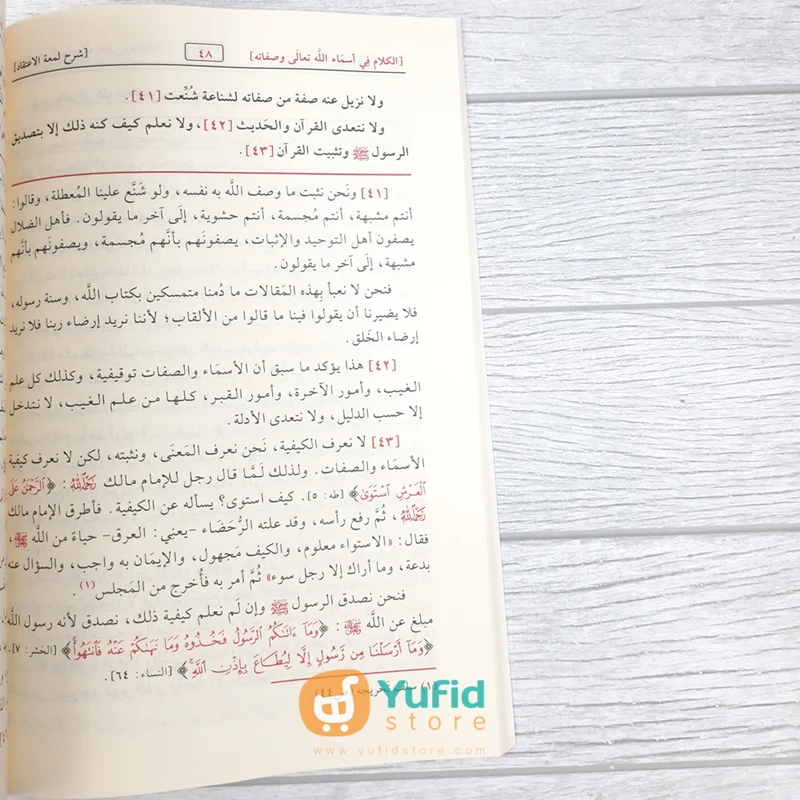 [الكلام في أسمَاء اللَّه تعالَى وصفاته] ٤٨ [شرح لمعة الاعتقاد]
ولا نزيل عنه صفة من صفاته لشناعة شُنِّعت [٤١].
ولا نتعدى القرآن والحَديث [٤٢]، ولا نعلم كيف كنه ذلك إلا بتصديق
الرسول ﷺ وتثبيت القرآن [٤٣].
[٤١] ونَحن نثبت ما وصف اللَّه به نفسه، ولو شَنَّع علينا المُعطلة، وقالوا:
أنتم مشبهة، أنتم مُجسمة، أنتم حشوية، إلَى آخر ما يقولون. فأهل الضلال
يصفون أهل التوحيد والإثبات، يصفونَهم بأنَّهم مُجسمة، ويصفونَهم بأنَّهم
مشبهة، إلَى آخر ما يقولون.
فنحن لا نعبأ بِهذه المَقالات ما دُمنا متمسكين بكتاب اللَّه، وسنة رسوله،
فلا يضيرنا أن يقولوا فينا ما قالوا من الألقاب؛ لأننا نريد إرضاء ربنا فلا نريد
إرضاء الخَلق.
[٤٢] هذا يؤكد ما سبق أن الأسمَاء والصفات توقيفية، وكذلك كل علم
الغيب، وأمور الآخرة، وأمور القبر، كلها من علم الغيب، لا نتدخل
إلا حسب الدليل، ولا نتعدى الأدلة.
[٤٣] لا نعرف الكيفية، نَحن نعرف المَعنَى، ونثبته، لكن لا نعرف كيفية
الأسمَاء والصفات. ولذلك لَمَّا قال رجل للإمام مالك رَحِمَهُ اللَّهُ: ﴿ٱلرَّحْمَٰنُ عَلَى
ٱلْعَرْشِ ٱسْتَوَىٰ﴾ [طه: ٥]. كيف استوى؟ يسأله عن الكيفية. فأطرق الإمام مالك
رَحِمَهُ اللَّهُ، ثُمَّ رفع رأسه، وقد علته الرُّحَضَاء -يعني: العرق- حياءً من اللَّه ﷻ،
فقال: «الاستواء معلوم، والكيف مَجهول، والإيمَان به واجب، والسؤال عنه
بدعة، وما أراك إلا رجل سوء» ثُمَّ أمر به فأُخرج من المَجلس (١).
فنحن نصدق الرسول ﷺ وإن لَم نعلم كيفية ذلك، نصدق لأنه رسول اللَّه
مبلغ عن اللَّه ﷻ: ﴿وَمَآ ءَاتَىٰكُمُ ٱلرَّسُولُ فَخُذُوهُ وَمَا نَهَىٰكُمْ عَنْهُ فَٱنتَهُوا۟﴾ [الحَشر: ٧].
﴿وَمَآ أَرْسَلْنَا مِن رَّسُولٍ إِلَّا لِيُطَاعَ بِإِذْنِ ٱللَّهِ﴾ [النساء: ٦٤].
(١) سبق تَخريجه
YuFid
store
www.yufidstore.com